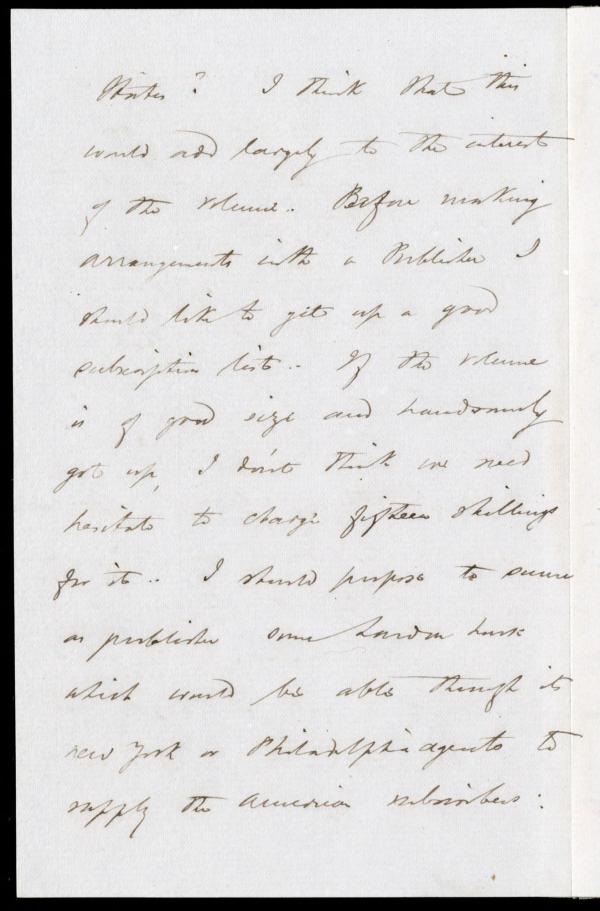 States? I think that this
would add largely to the interest
of the volume.. Before making
arrangements with a Publisher I
should like to get up a good
subscription list.. If the volume
is of good size and handsomely
got up, I don't think we need
hesitate to charge fifteen shillings
for it.. I should propose to secure
as publisher some London
which would be able through its
new York or Philadelphia agents to
supply the American subscribers.